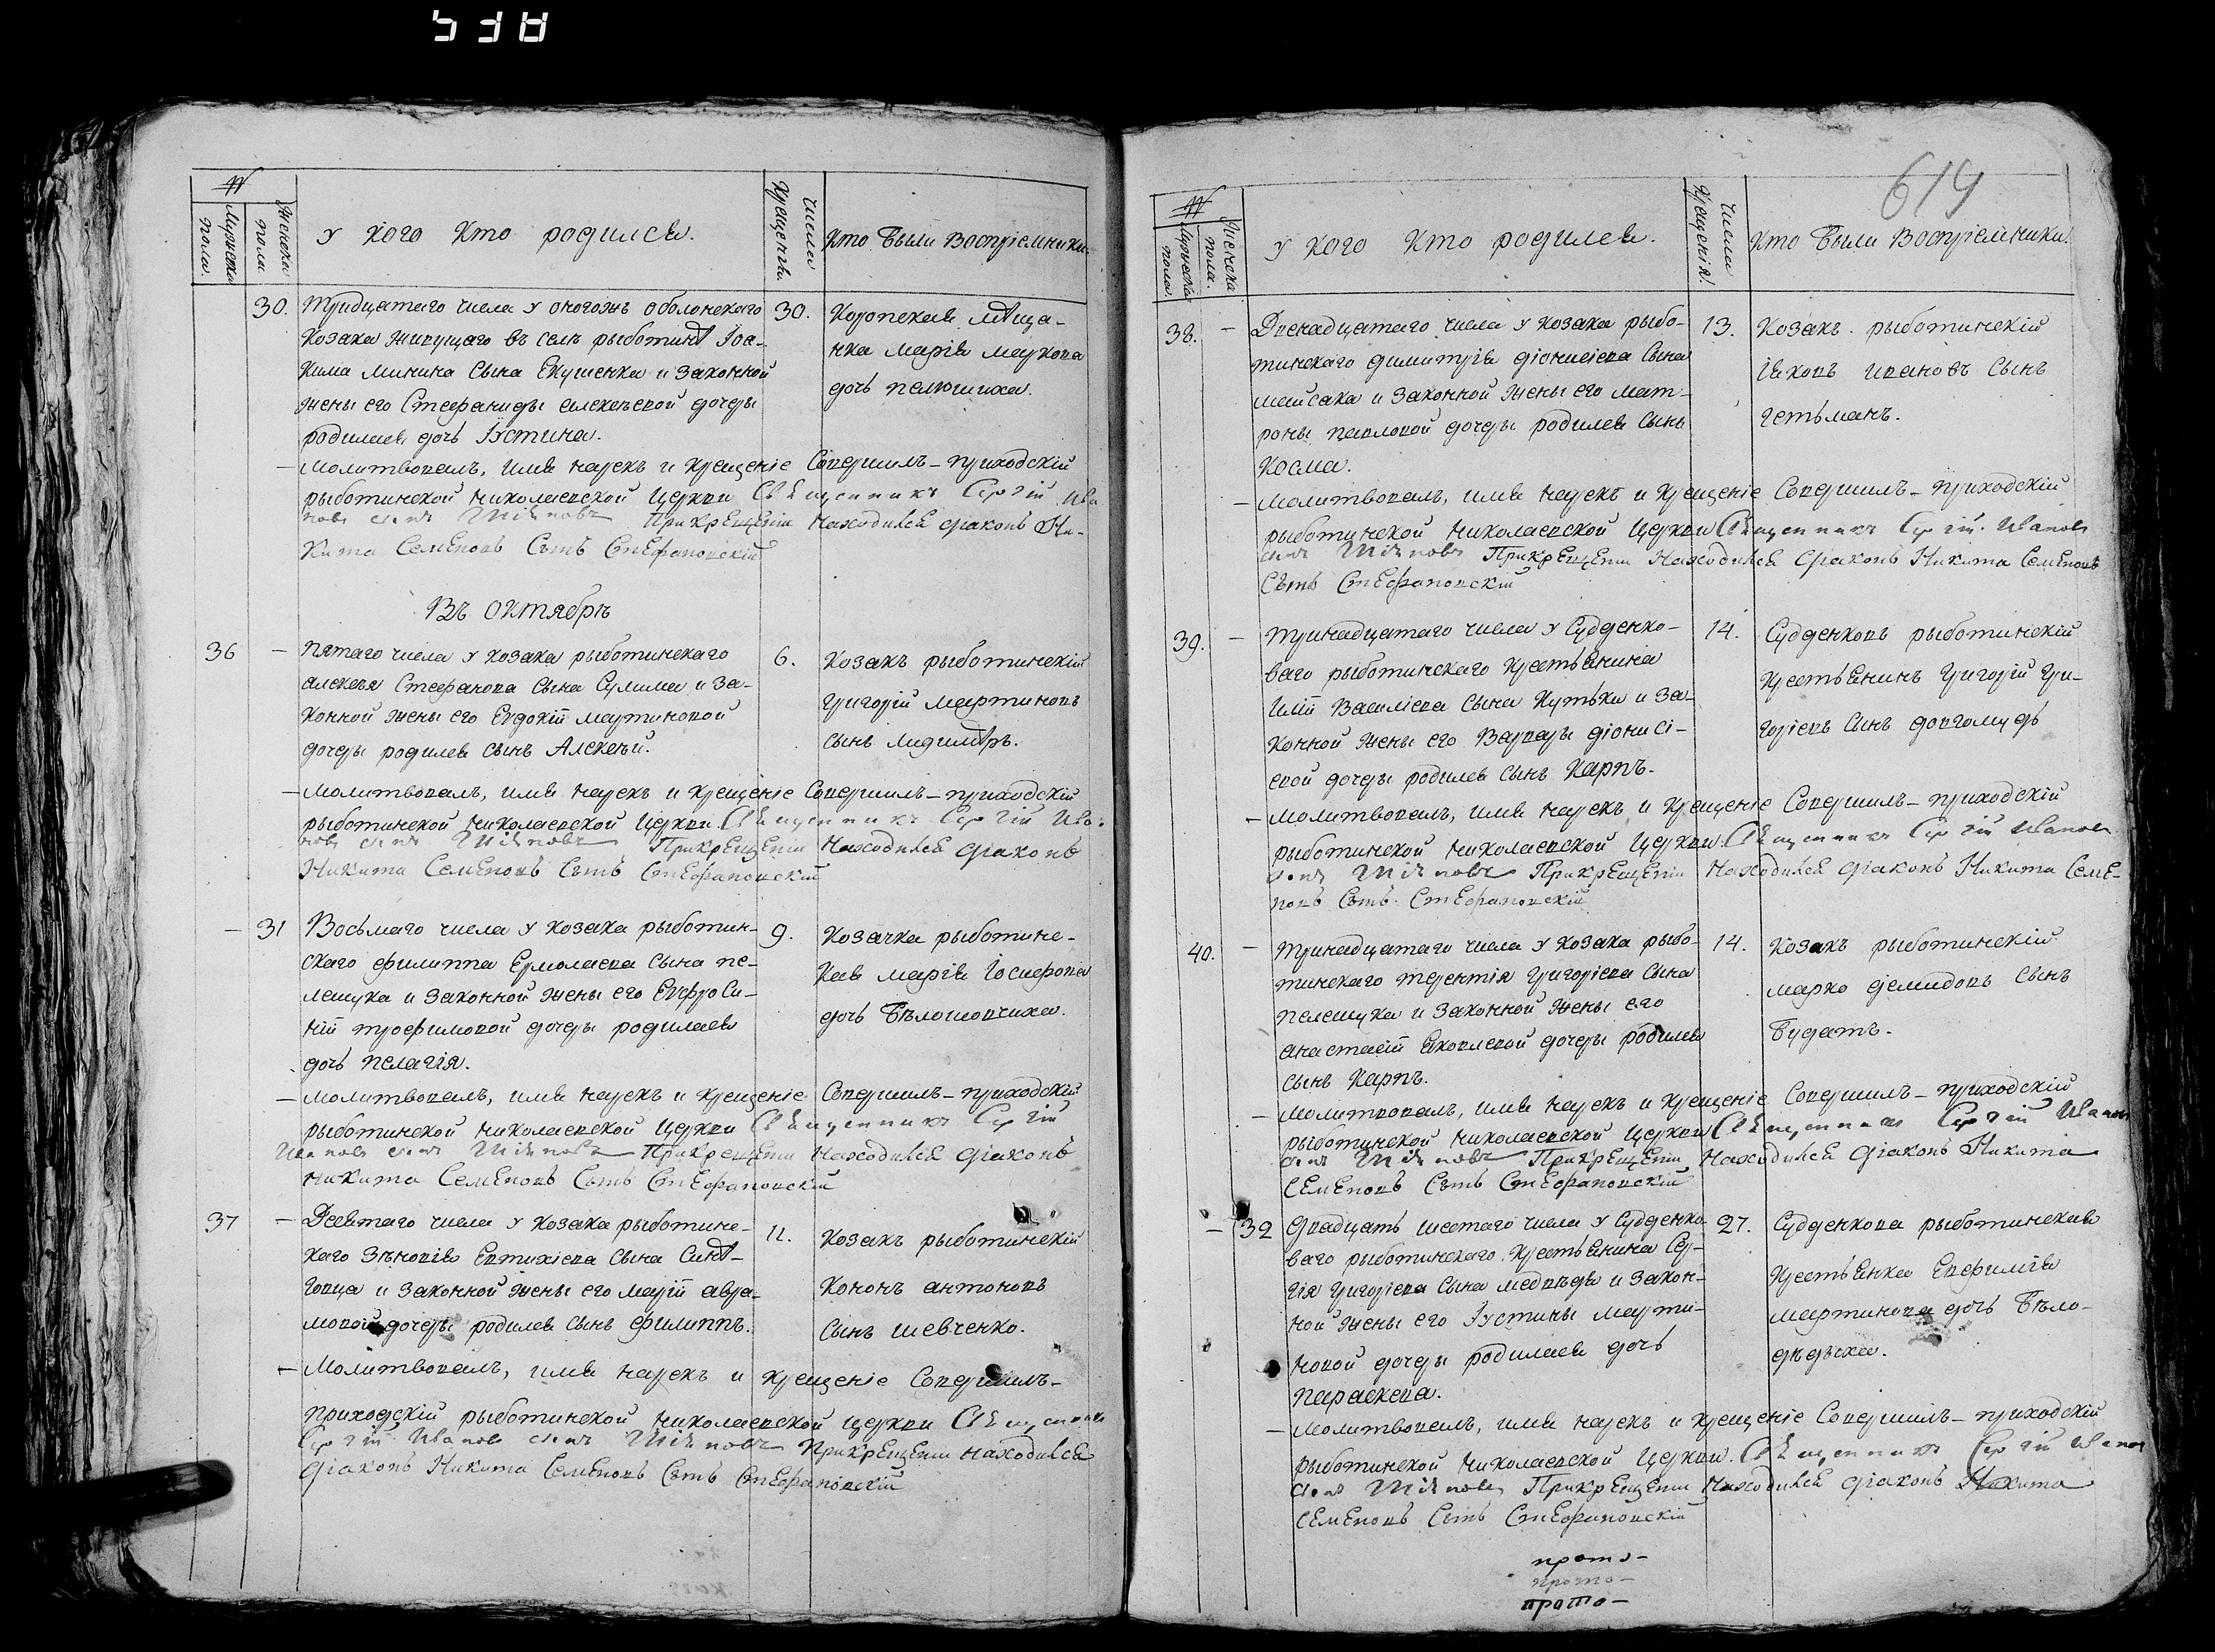 538
№
Мужеска пола.
Женска пола.
У кого кто родился.
Числа Крещенія.
Кто были воспріемники.
30.
Тридцатаго числа у оногожъ оболонскаго
козака живущаго въ селѣ рыботинѣ Іоа-
кима минина сына Якушенка и законной
жены его Стефаниды алексѣевой дочеры
родилась дочь Іустина.
30.
Коропская мѣща-
нка марія маркова
дочь пелюшиха.
– Молитвовалъ, имя нарекъ и крещеніе совершилъ – приходскій
рыботинской николаевской церкви Священникъ Сергій Ива
новъ сынъ При крещеніи находился діаконъ Ни-
кита Семеновъ Сынъ Стефановскій
Въ октябрѣ
36 –
пятаго числа у козака рыботинскаго
алексѣя Стефанова сына Сулима и за-
конной жены его Евдокіи мартиновой
дочеры родился сынъ Алексѣй.
6.
Козакъ рыботинскій
григорій мартиновъ
сынъ
– молитвовалъ, имя нарекъ и крещеніе совершилъ – приходскій
рыботинской николаевской церкви Священникъ Сергій Ива-
новъ сынъ При крещеніи находился діаконъ
Никита Семеновъ Сынъ Стефановскій
– 31
Восьмаго числа у козака рыботин-
скаго филиппа Ермолаева сына пе-
лешука и законной жены его Евфроси-
ніи трофимовой дочеры родилась
дочь пелагія.
9.
Козачка рыботинс-
кая марія Іосифова
дочь Бѣлошовчиха.
– молитвовалъ, имя нарекъ и крещеніе совершилъ – приходскій
рыботинской николаевской церкви Священникъ Сергій
Ивановъ сынъ При крещеніи находился діаконъ
никита Семеновъ Сынъ Стефановскій
37 –
Девятаго числа у козака рыботинс-
каго Зѣновія Евтихіева сына
и законной жены его маріи авра-
мовой дочеры родился сынъ филиппъ.
11.
Козакъ рыботинскій
Кононъ антоновъ
сынъ шевченко.
– Молитвовалъ, имя нарекъ и крещеніе совершилъ –
приходскій рыботинской николаевской церкви Священникъ
Сергій Ивановъ сынъ При крещеніи находился
діаконъ Никита Семеновъ Сынъ Стефановскій
619
№
Мужеска пола.
Женска пола.
У кого кто родился.
Числа Крещенія.
Кто были воспріемники.
38. –
Двенадцатаго числа у козака рыбо-
тинскаго димитрія діонисіева сына
майсака и законной жены его мат-
роны павловой дочеры родился сынъ
Косма.
13.
Козакъ рыботинскій
Іяковъ ивановъ сынъ
гетьманъ.
– молитвовалъ, имя нарекъ и крещеніе совершилъ – приходскій
рыботинской николаевской церкви Священникъ Сергій Ивановъ
сынъ При крещеніи находился діаконъ Никита Семеновъ
Сынъ Стефановскій
39. –
тринадцатаго числа у Судденко-
ваго рыботинскаго крестьянина
Иліи Василіева сына Кутька и за-
конной жены его Варвары діонисі-
евой дочеры родился сынъ Карпъ.
14.
Судденковъ рыботинскій
крестьянинъ григорій гри-
горіевъ сынъ довгомудь
– молитвовалъ, имя нарекъ, и крещеніе совершилъ – приходскій
рыботинской николаевской церкви Священникъ Сергій Ивановъ
сынъ При крещеніи находился діаконъ Никита Семе-
новъ Сынъ Стефановскій
40. –
тринадцатаго числа у козака рыбо-
тинскаго терентія григоріева сына
пелешука и законной жены его
анастасіи яковлевой дочеры родился
сынъ Карпъ.
14.
Козакъ рыботинскій
марко демидовъ сынъ
Будатъ.
– молитвовалъ, имя нарекъ и крещеніе совершилъ – приходскій
рыботинской николаевской церкви Священникъ Сергій Ивановъ
сынъ При крещеніи находился діаконъ Никита
Семеновъ Сынъ Стефановскій
– 32
Двадцать шестаго числа у Судденко-
ваго рыботинскаго крестьянина Сер-
гія григоріева сына медвѣдя и закон-
ной жены его Іустины марти-
новой дочеры родилась дочь
параскева.
27.
Судденкова рыботинская
крестьянка Евфимія
мартинова дочь Бѣло-
дѣдыха.
– молитвовалъ, имя нарекъ и крещеніе совершилъ – приходскій
рыботинской николаевской церкви Священникъ Сергій Ивановъ
сынъ При крещеніи находился діаконъ Никита
Семеновъ Сынъ Стефановскій
прото-
прото-
прото-